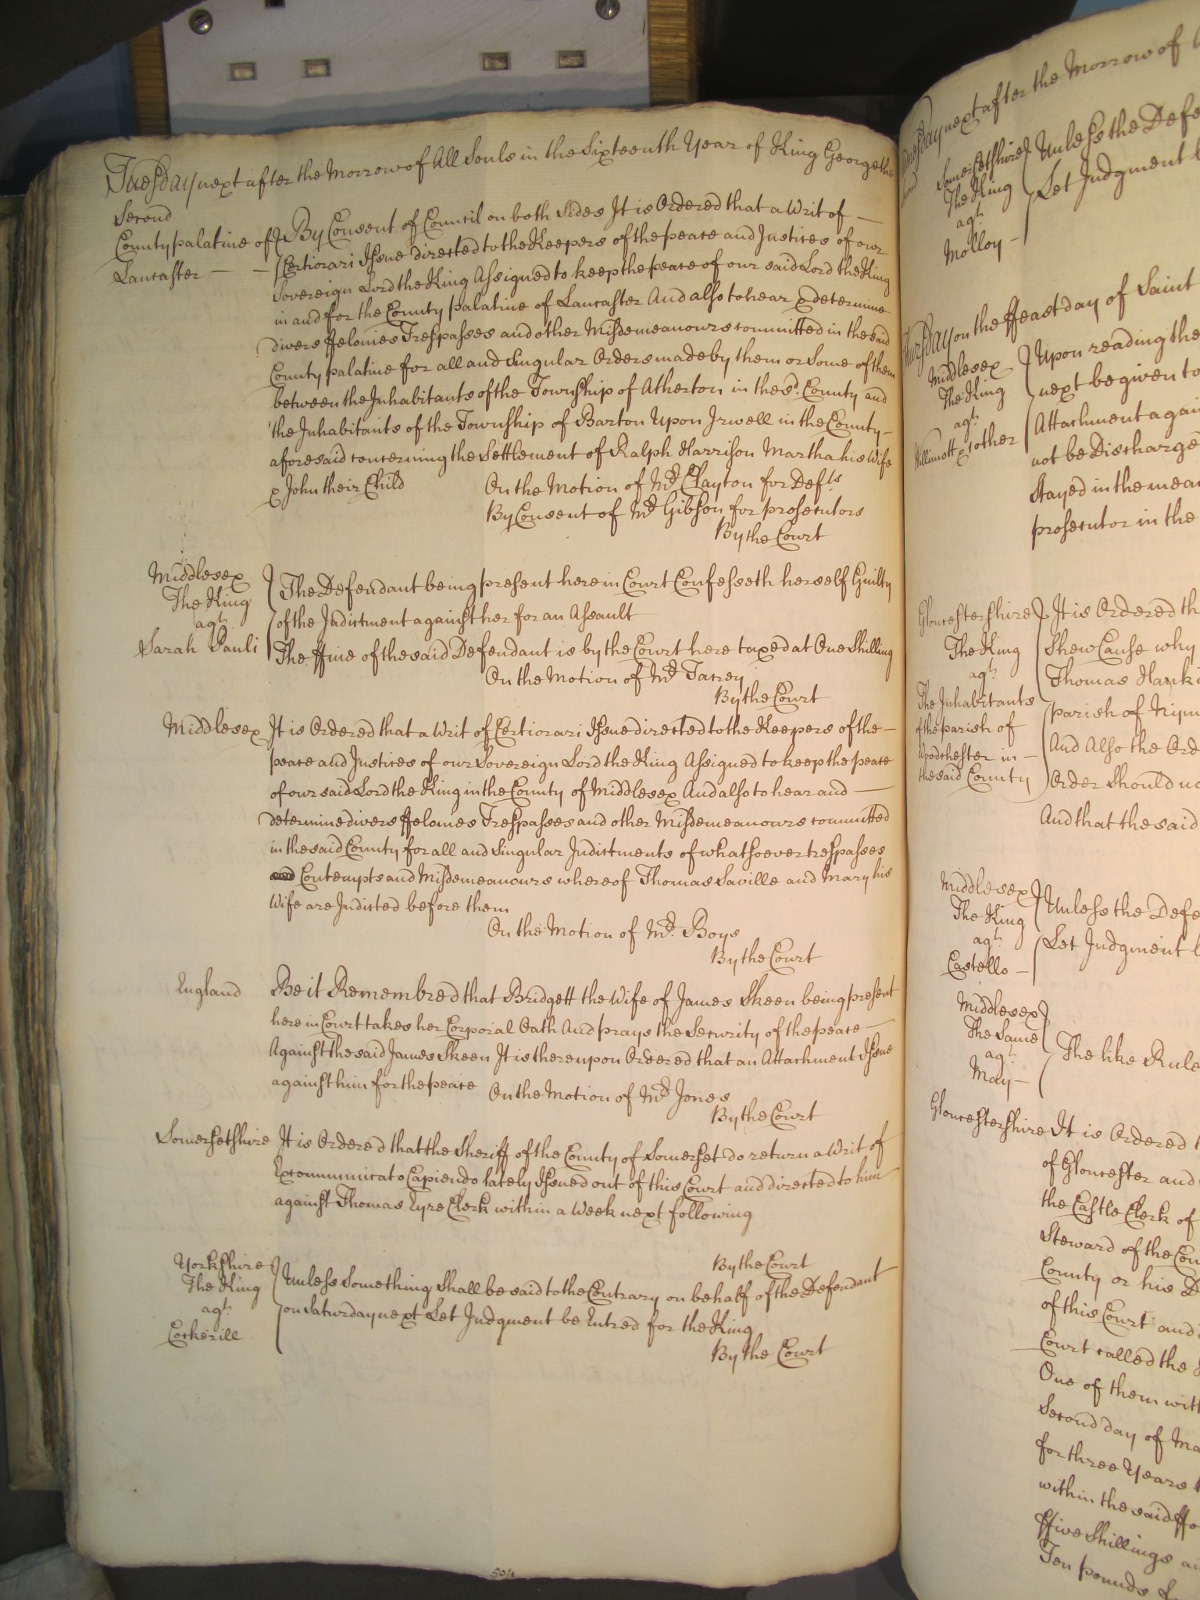 Tuesday next after the Morrow of All Souls in the Sixteenth Year of King George the
Second
County palatine of Lancaster — — By Consent of Council on both Sides It is Ordered that a Writ of —
Certiorari Issue directed to the Keepers of the peace and Justices of our
Sovereign Lord the King Assigned to keep the peace of our said Lord the King
in and for the County palatine of Lancaster And also to hear & determine
divers ffelonies Trespasses and other Misdemeanours committed in the said
County palatine for all and Singular Orders made by them or Some of them
between the Inhabitants of the Township of Atherton in the sd. County and
the Inhabitants of the Township of Barton Upon Irwell in the County —
aforesaid concerning the Settlement of Ralph Harrison Martha his Wife
& John their Child On the Motion of Mr. Clayton for Defts
By Consent of Mr. Gibson for prosecutors
By the Court
Middlesex
The King
agt.
Sarah Pauli
The Defendant being present here in Court Confesseth herself Guilty
of the Indictment against her for an Assault
The ffine of the said Defendant is by the Court here taxed at One Shilling
On the Motion of Mr.
By the Court
Middlesex It is Ordered that a Writ of Certiorari Issue directed to the Keepers of the —
peace and Justices of our Sovereign Lord the King Assigned to keep the peace
of our said Lord the King in the County of Middlesex And also to hear and —
determine divers ffelonies Trespasses and other Misdemeanours committed
in the said County for all and Singular Indictments of whatsoever trespasses
Contempts and Misdemeanours whereof Thomas Saville and Mary his
Wife are Indicted before them
On the Motion of Mr. Boys
By the Court
England Be it Remembred that Bridgett the Wife of James Skeen being present
here in Court takes her Corporal Oath And prays the Security of the peace —
Against the said James Skeen It is thereupon Ordered that an Attachment Issue
against him for the peace On the Motion of Mr. Jones
By the Court
Somersetshire It is Ordered that the Sheriff of the County of Somerset do return a Writ of
Excommunicato Capiendo lately Issued out of this Court and directed to him
against Thomas Eyre Clerk within a Week next following
By the Court
Yorkshire
The King
agt.
Cockerill
Unless Something Shall be said to the Contrary on behalf of the Defendant
on Saturday next Let Judgment be Entred for the King
By the Court
504
next after the Morrow of
Somersetshire
The King
agt.
Molloy —
Unless the Defe
Let Judgment
on the ffeast day of Saint
Middlesex
The King
agt.
& other
Upon reading the
next be given to
Attachment again
not be Discharge
Stayed in the mean
prosecutor in the
Gloucestershire
The King
agt.
The Inhabitants
of the parish of
Woodchester in —
the said County
It is Ordered th
Shew Cause why
Thomas Hanki
parish of Nym
And Also the Ord
Order Should no
And that the said
Middlesex
The King
agt.
Castello —
Unless the Defe
Let Judgment
Middlesex
The Same
agt.
May —
The like Rule
Gloucestershire It is Ordered
of Gloucester and
the Castle Clerk of
Steward of the Cou
County or his D
of this Court and
Court called the
One of them with
Second day of Ma
for three Years
within the said ffo
ffive Shillings a
Ten pounds